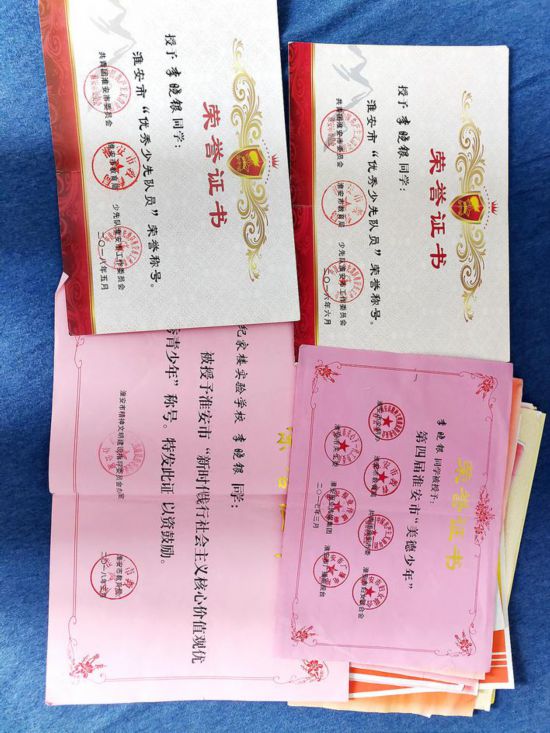 荣誉证书
授予 李晓银 同学：
淮安市“优秀少先队员”荣誉称号。
共青团淮安市委员会
淮安市教育局
少先队淮安市工作委员会
二〇一八年五月
荣誉证书
授予 李晓银 同学：
淮安市“优秀少先队员”荣誉称号。
共青团淮安市委员会
淮安市教育局
少先队淮安市工作委员会
二〇一六年六月
纪家楼实验学校 李晓银 同学：
被授予淮安市“新时代践行社会主义核心价值观优
秀青少年”称号。特发此证 以资鼓励。
淮安市精神文明建设指导委员会办公室
淮安市教育局
荣誉证书
李晓银 同学被授予：
第四届淮安市“美德少年”
二〇一七年三月